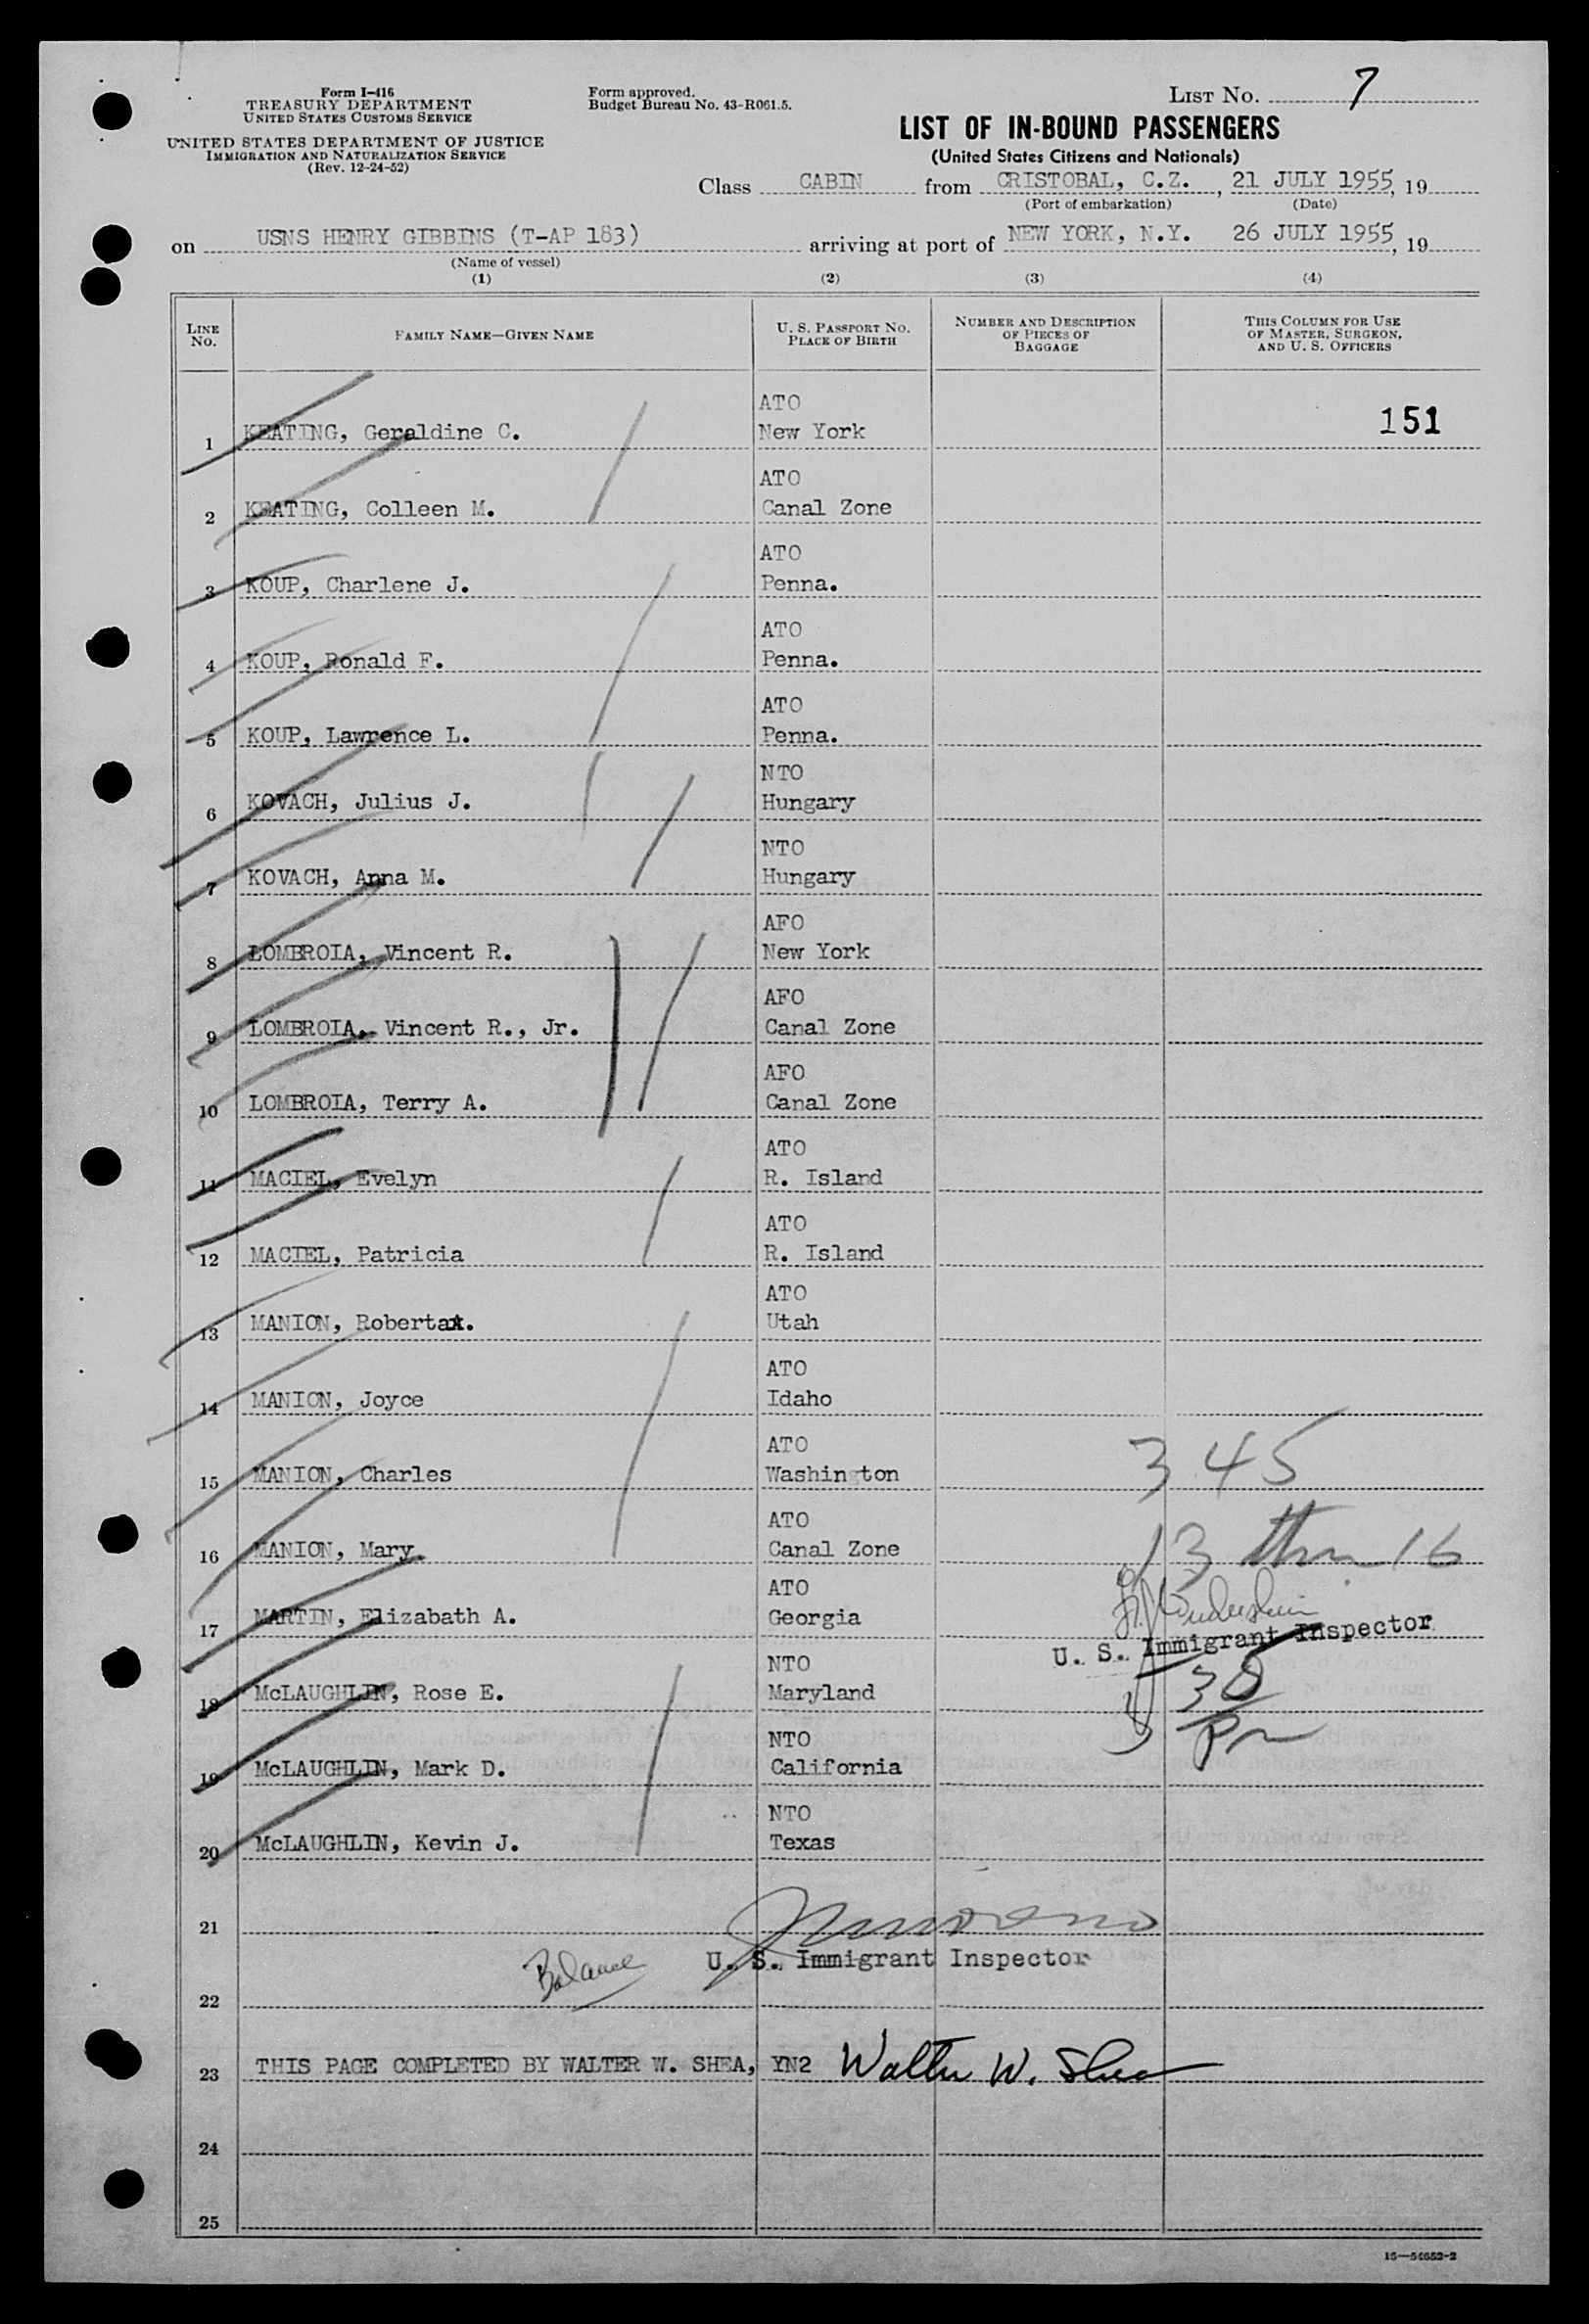 Form I-416
TREASURY DEPARTMENT
UNITED STATES CUSTOMS SERVICE
UNITED STATES DEPARTMENT OF JUSTICE
IMMIGRATION AND NATURALIZATION SERVICE
(Rev. 12-24-52)
Form approved.
Budget Bureau No. 43-R061.5.
LIST NO. 7
LIST OF IN-BOUND PASSENGERS
(United States Citizens and Nationals)
Class CABIN from CRISTOBAL, C.Z., 21 JULY 1955, 19
(Port of embarkation) (Date)
on USNS HENRY GIBBINS (T-AP 183) arriving at port of NEW YORK, N.Y. 26 JULY 1955, 19
(Name of vessel)
(1) (2) (3) (4)
LINE NO. FAMILY NAME—GIVEN NAME U. S. PASSPORT NO. PLACE OF BIRTH NUMBER AND DESCRIPTION OF PIECES OF BAGGAGE THIS COLUMN FOR USE OF MASTER, SURGEON, AND U. S. OFFICERS
ATO
1 KEATING, Geraldine C. New York 151
ATO
2 KEATING, Colleen M. Canal Zone
ATO
3 KOUP, Charlene J. Penna.
ATO
4 KOUP, Ronald F. Penna.
ATO
5 KOUP, Lawrence L. Penna.
NTO
6 KOVACH, Julius J. Hungary
NTO
7 KOVACH, Anna M. Hungary
AFO
8 LOMBROIA, Vincent R. New York
AFO
9 LOMBROIA, Vincent R., Jr. Canal Zone
AFO
10 LOMBROIA, Terry A. Canal Zone
ATO
11 MACIEL, Evelyn R. Island
ATO
12 MACIEL, Patricia R. Island
ATO
13 MANION, Roberta. Utah
ATO
14 MANION, Joyce Idaho
ATO
15 MANION, Charles Washington 3 4 5
ATO
16 MANION, Mary Canal Zone 13 thru 16
ATO
17 MARTIN, Elizabath A. Georgia
U. S. Immigrant Inspector
NTO
18 McLAUGHLIN, Rose E. Maryland 30
NTO
19 McLAUGHLIN, Mark D. California
NTO
20 McLAUGHLIN, Kevin J. Texas
21
Balance U. S. Immigrant Inspector
22
23 THIS PAGE COMPLETED BY WALTER W. SHEA, YN2 Walter W. Shea
24
25
16—54652-2